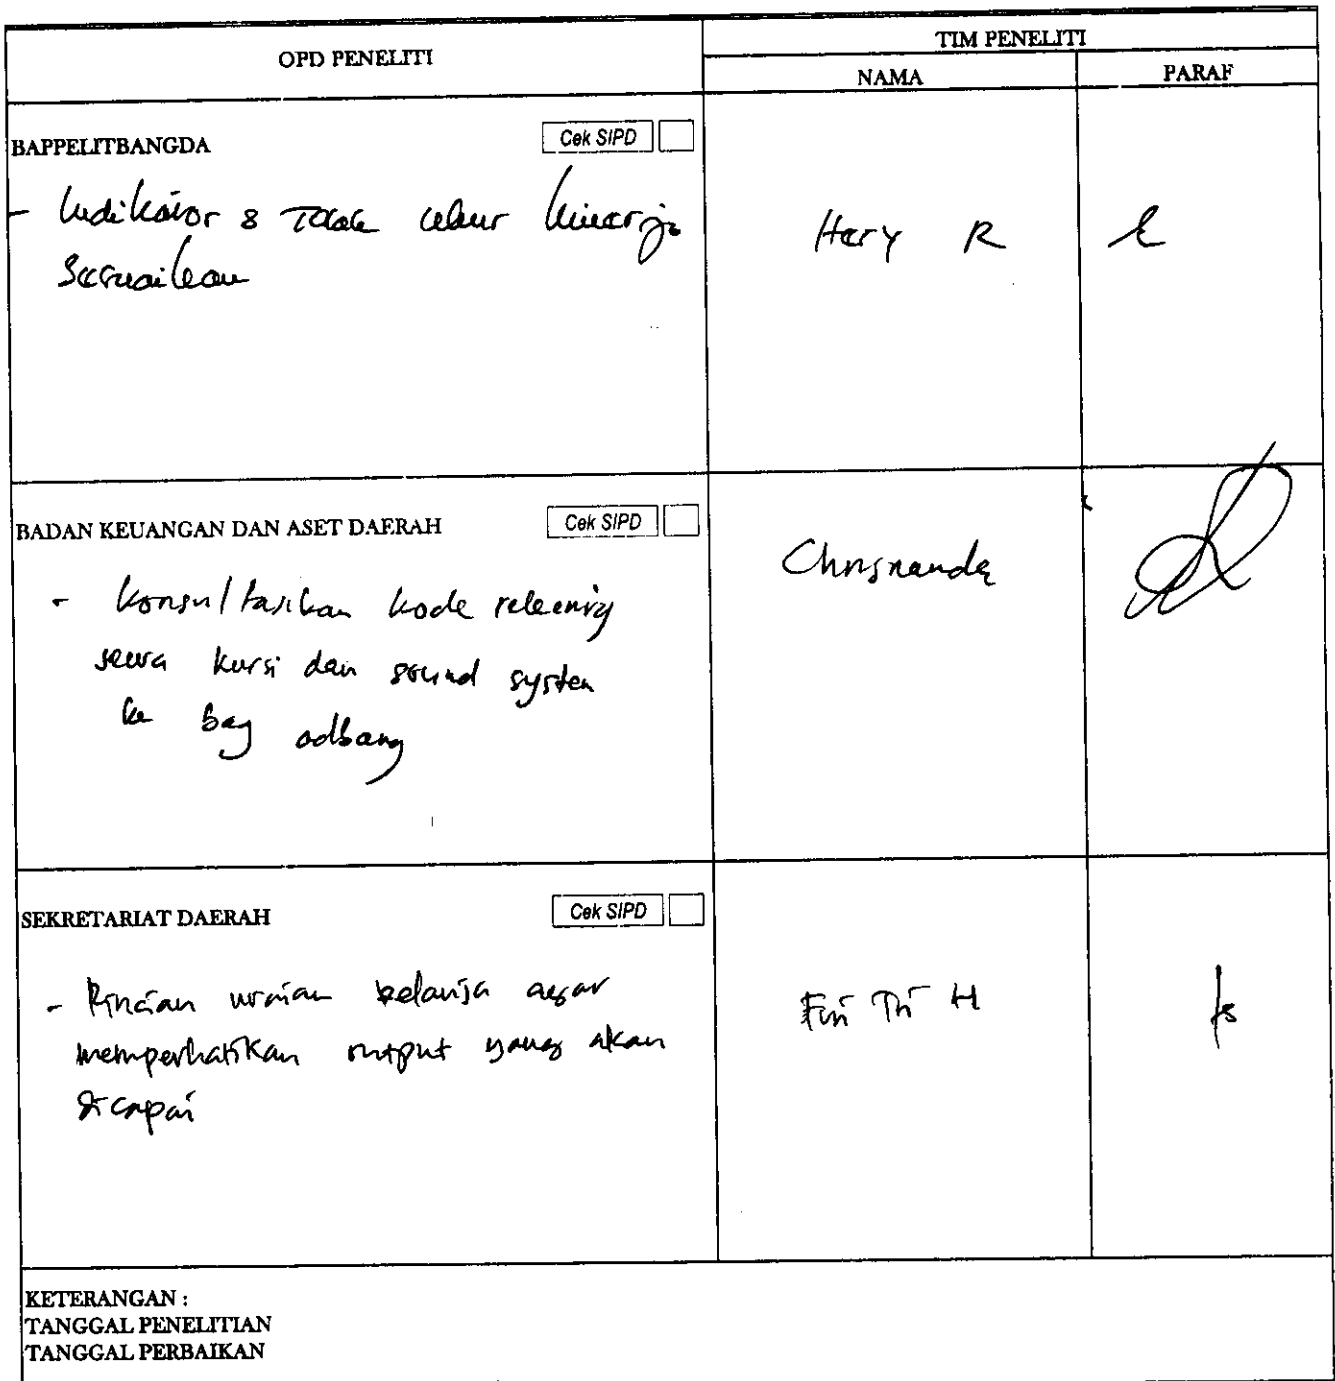 OPD PENELITI
TIM PENELITI
NAMA
PARAF
BAPPELITBANGDA
Cek SIPD
- Indikator & Tolak ukur kinerja
sesuaikan
Hery R
BADAN KEUANGAN DAN ASET DAERAH
Cek SIPD
- konsultasikan kode rekening
sewa kursi dan sound system
ke bag adbang
Chrisnanda
SEKRETARIAT DAERAH
Cek SIPD
- Rincian uraian belanja agar
memperhatikan output yang akan
dicapai
Tri H
KETERANGAN :
TANGGAL PENELITIAN
TANGGAL PERBAIKAN